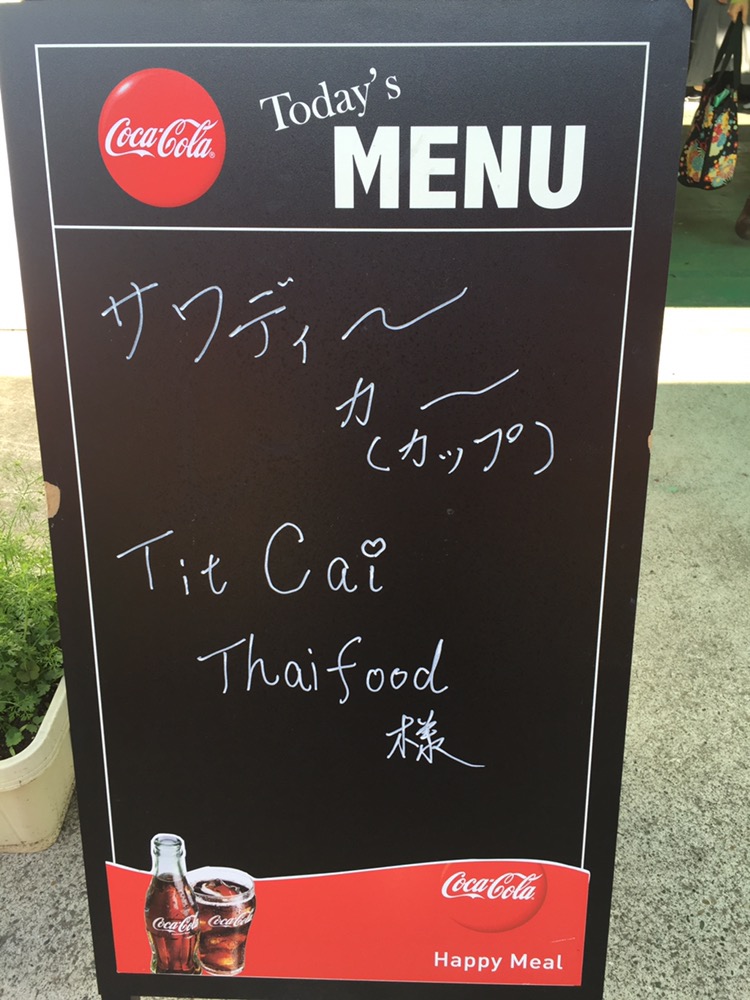 Coca-Cola
Today's
MENU
サワディ〜
カー
(カップ)
Tit Cai
Thaifood
様
Coca-Cola
Coca-Cola
Coca-Cola
Happy Meal